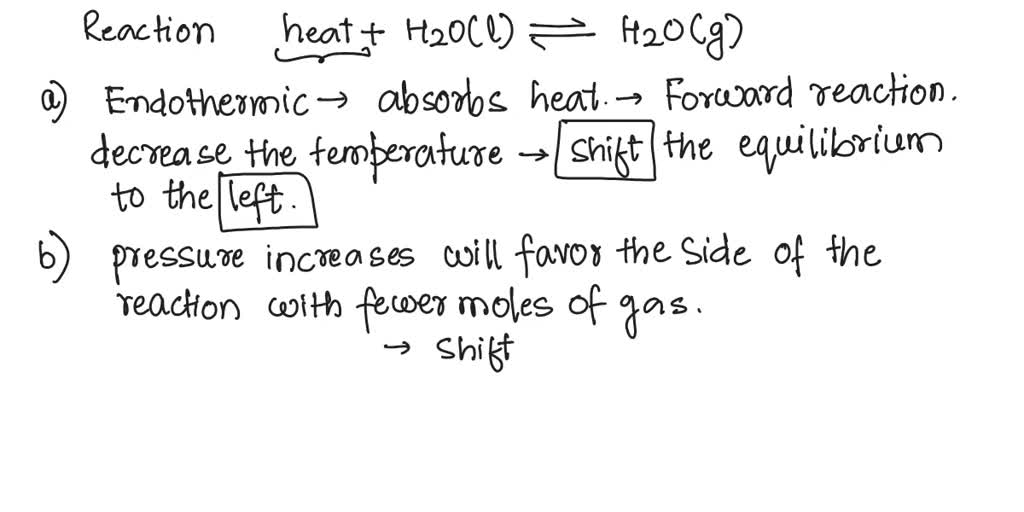 Reaction heat + H2O(l) ⇌ H2O(g)
a) Endothermic → absorbs heat. → Forward reaction.
decrease the temperature → shift the equilibrium
to the left.
b) pressure increases will favor the side of the
reaction with fewer moles of gas.
→ shift